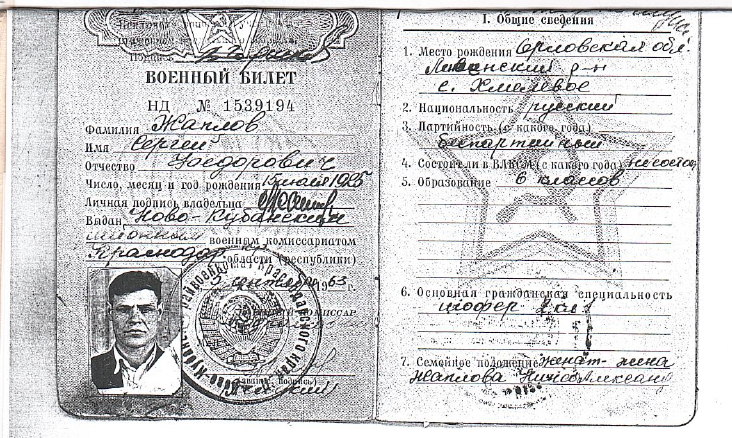 Подпись
ВОЕННЫЙ БИЛЕТ
НД № 1539194
Фамилия Жаплов
Имя Сергей
Отчество Феодорович
Число, месяц и год рождения 15 мая 1925
Личная подпись владельца
Выдан Ново-Кубанским
районным военным комиссариатом
Краснодар области (республики)
5 сентября 1963 г.
I. Общие сведения
1. Место рождения Орловская обл.
Ливенский р-н
с. Хмелевое
2. Национальность русский
3. Партийность (с какого года)
беспартийный
4. Состоял в ВЛКСМ (с какого года) не состоял
5. Образование 6 классов
6. Основная гражданская специальность
шофер 2 кл
7. Семейное положение женат - жена
Жаплова Нина Александ